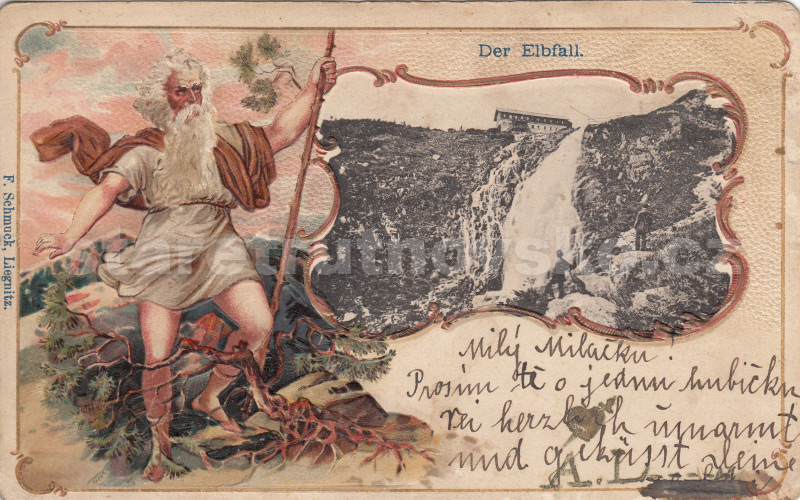 Der Elbfall.
F. Schmuck, Liegnitz.
staretrutnovsko.cz
Milý Miláčku!
Prosím tě o jednu hubičku
sei herzlich umarmt
und geküsst deine
A.